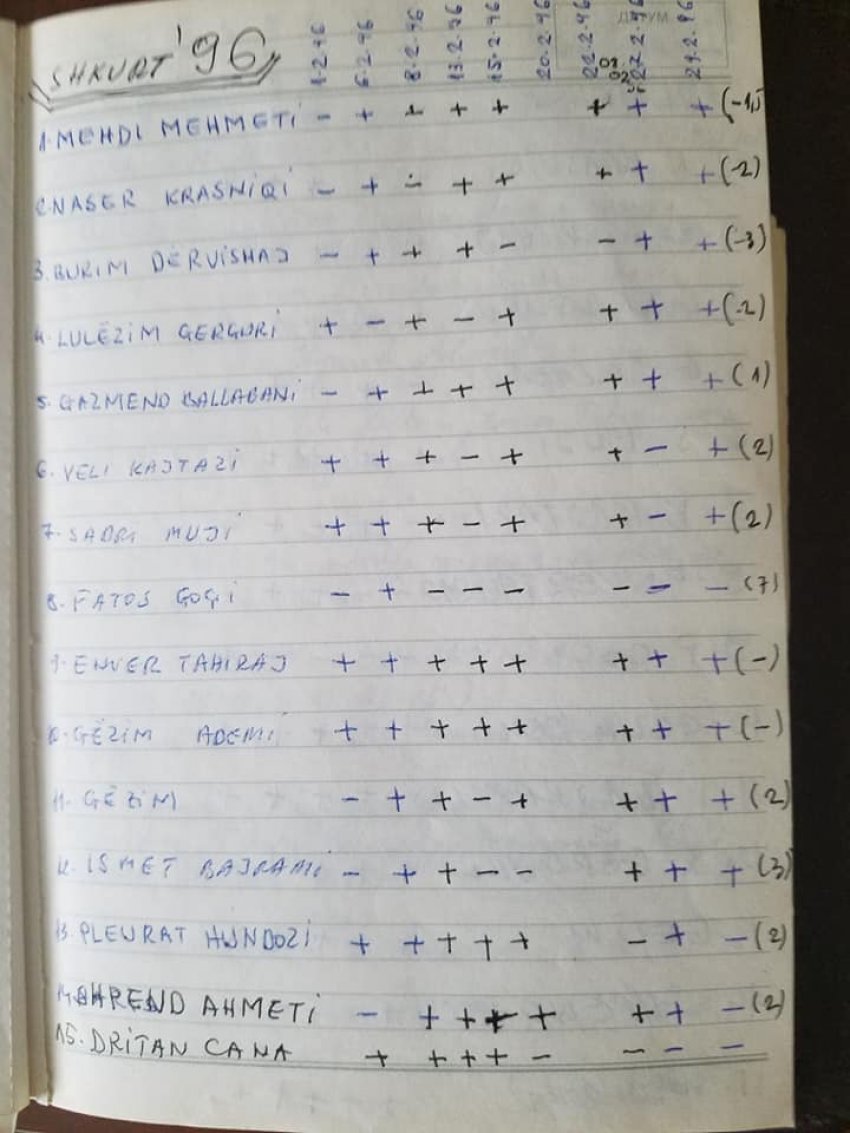 SHKURT '96
1.2.96 6.2.96 8.2.96 13.2.96 15.2.96 20.2.96 22.2.96 27.2.96 29.2.96
ДАТУМ
1. MEHDI MEHMETI - + + + + + + + (-1)
2. NASER KRASNIQI - + ÷ + + + + + (-2)
3. BURIM DERVISHAJ - + + + - - + + (-3)
4. LULËZIM GERGURI + - + - + + + + (-2)
5. GAZMEND BALLABANI - + + + + + + + (1)
6. VELI KAJTAZI + + + - + + - + (2)
7. SADRI MUJI + + + - + + - + (2)
8. FATOS GOÇI - + - - - - - - (7)
9. ENVER TAHIRAJ + + + + + + + + (-)
10. GËZIM ADEMI + + + + + + + + (-)
11. GËZIM - + + - + + + + (2)
12. ISMET BAJRAMI - + + - - + + + (3)
13. PLEURAT HUNDOZI + + + + + - + - (2)
14. AHREND AHMETI - + + + + + + - (2)
15. DRITAN CANA + + + + - - - -